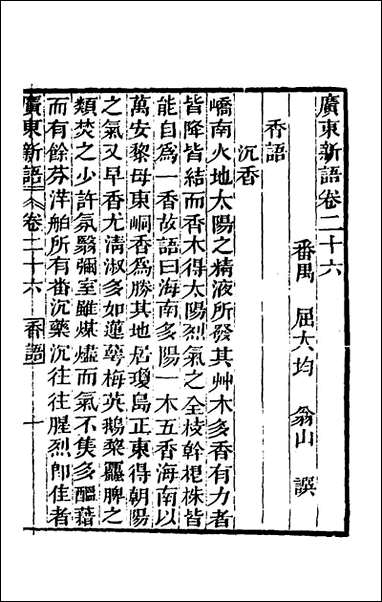 廣東新語卷二十六
番禺　屈大均　翁山　譔
香語
沉香
嶠南火地太陽之精液所發其艸木多香有力者
皆降皆結而香木得太陽烈氣之全枝幹根株皆
能自爲一香故語曰海南多陽一木五香海南以
萬安黎母東峒香爲勝其地居瓊島正東得朝陽
之氣又早香尤清淑多如蓮萼梅英鵝棃蠶脾之
類焚之少許氛翳彌室雖煤燼而氣不焦多醞藉
而有餘芬洋舶所有番沉藥沉往往腥烈卽佳者
廣東新語　卷二十六　香語　一